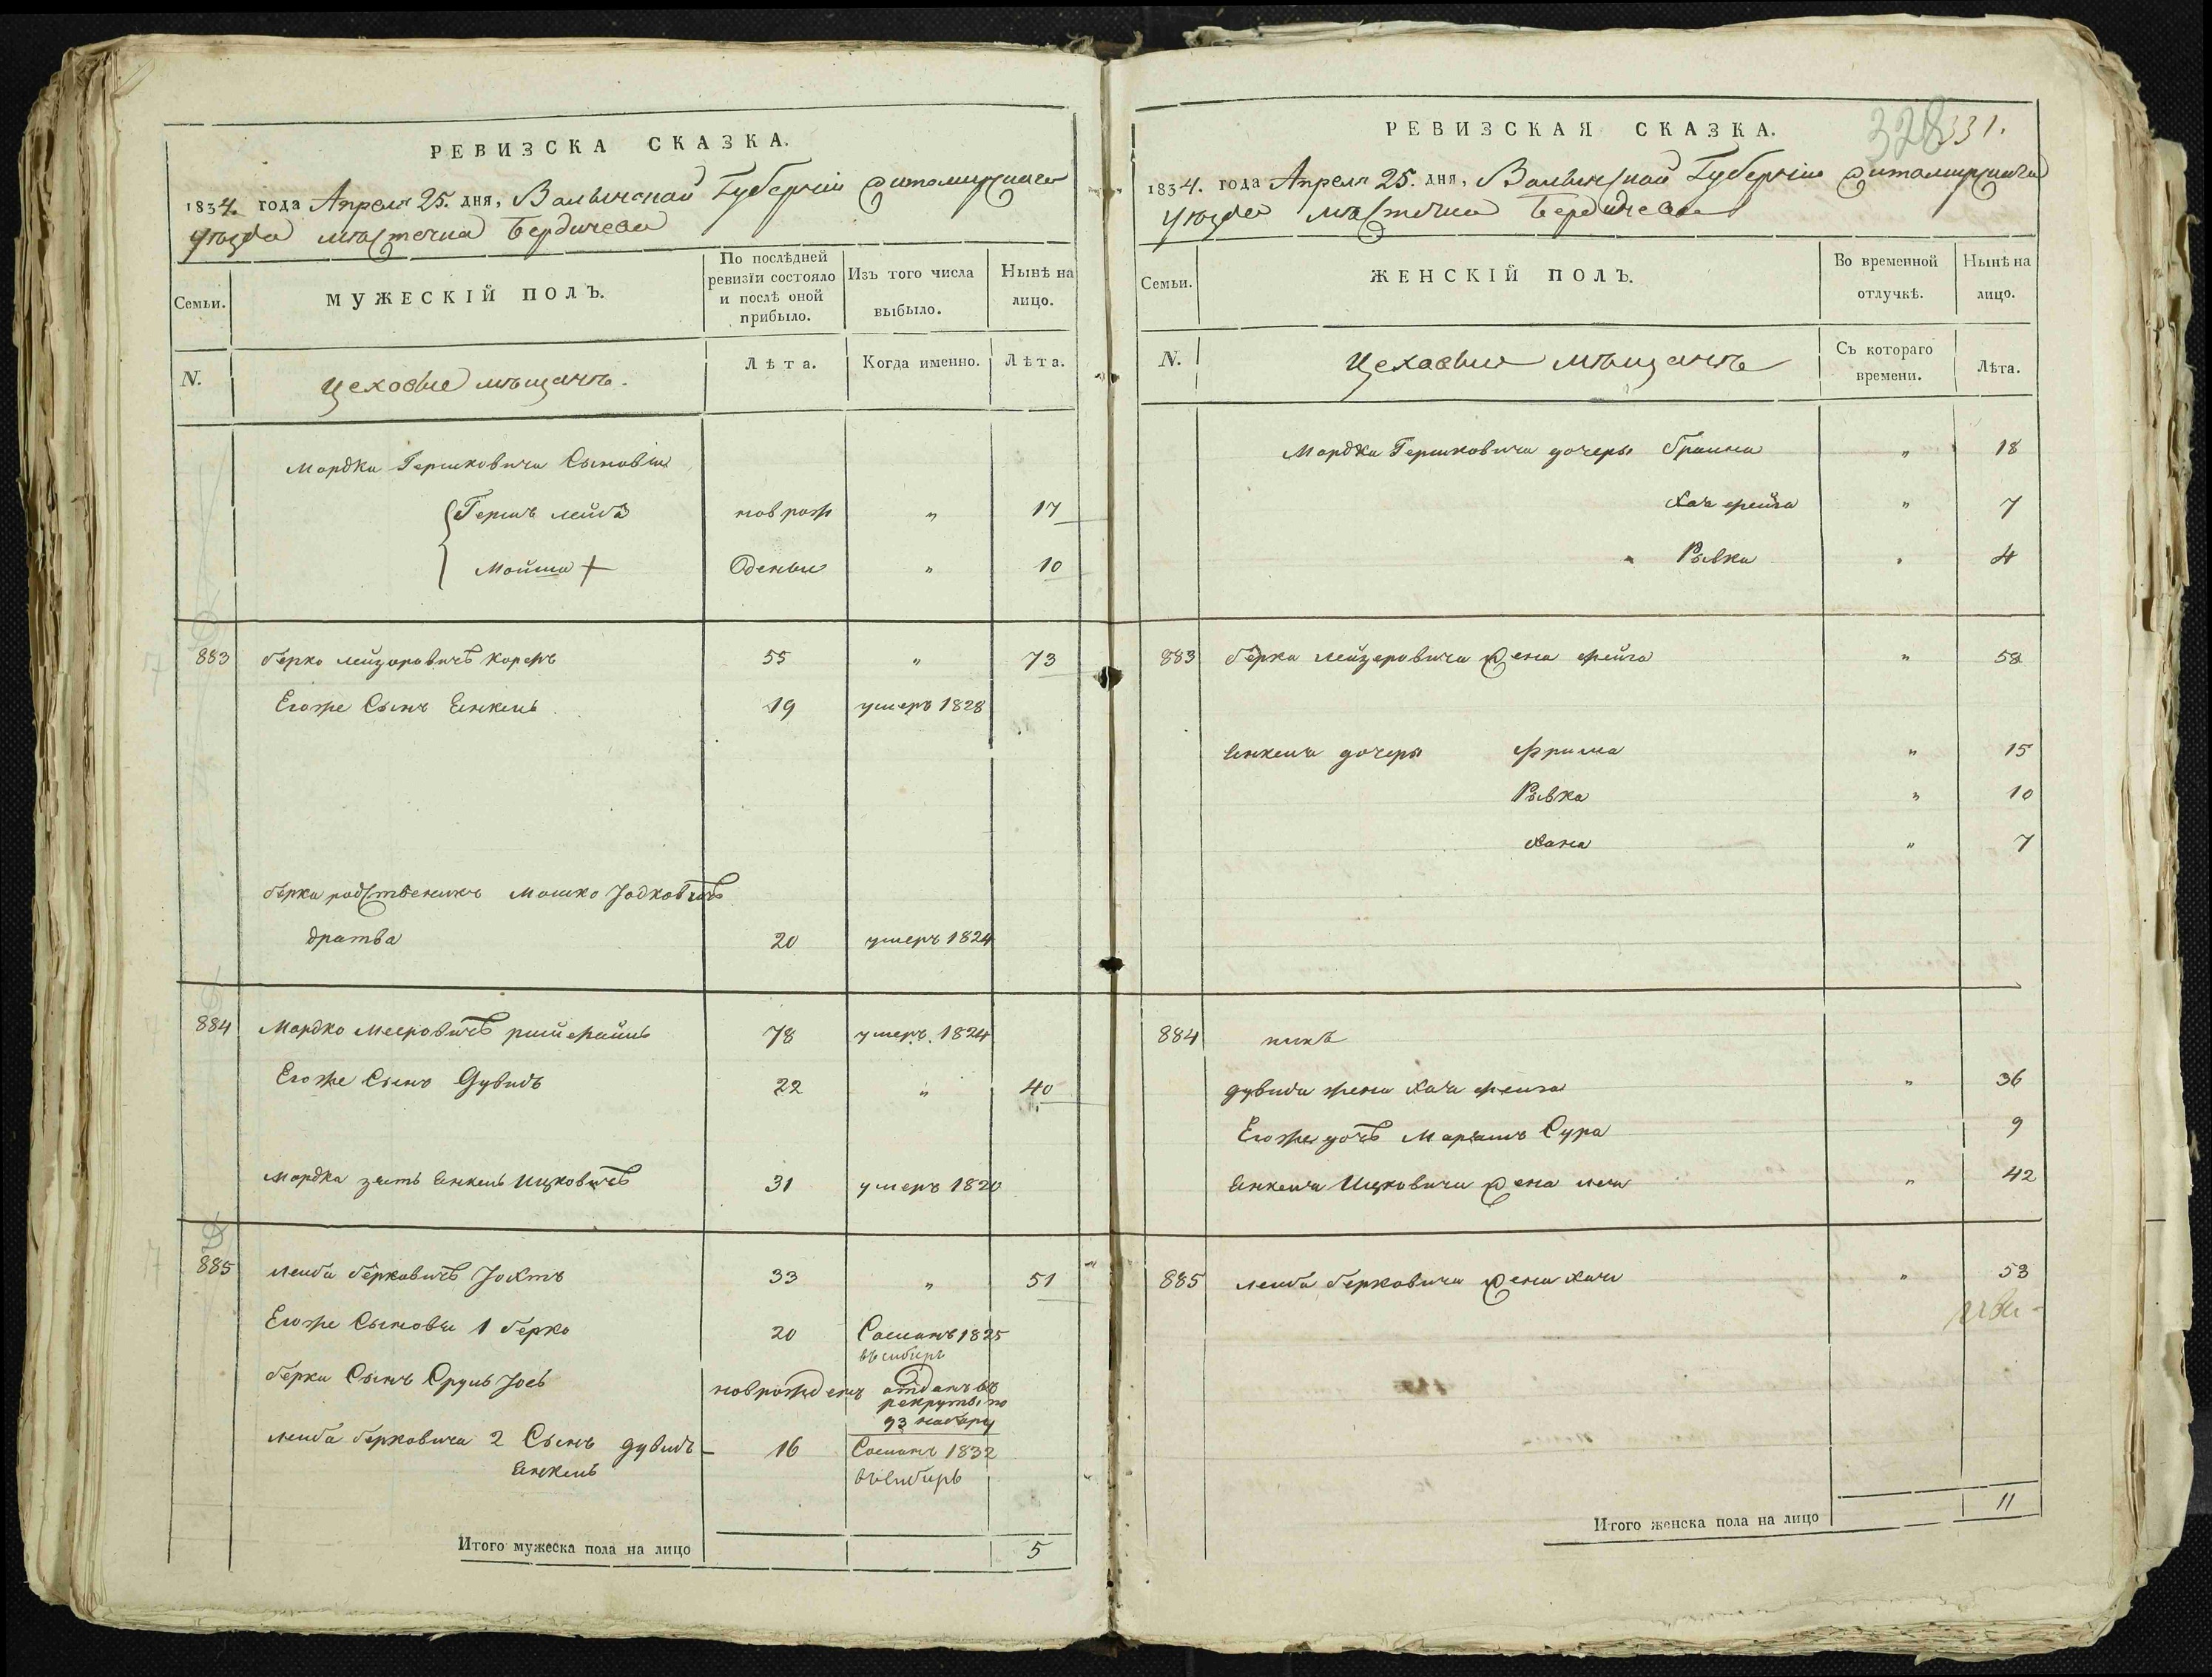 РЕВИЗСКА СКАЗКА.
1834. года Апреля 25. дня, Волынской Губернiи Житомирскаго
уѣзда мѣстечка Бердичева
Семьи.
МУЖЕСКІЙ ПОЛЪ.
По послѣдней ревизіи состояло и послѣ оной прибыло.
Изъ того числа выбыло.
Нынѣ на лицо.
N.
Цеховые мѣщанъ.
Лѣта.
Когда именно.
Лѣта.
Мордка Гершковича Сыновья
Гершъ лейба новрож " 17
Мойша + Оденые " 10
883 берко лейзоровичъ корежъ 55 " 73
Егоже Сынъ Енкель 19 умеръ 1828
берка родственикъ Мошко Іодковичъ
дратва 20 умеръ 1824
884 Мордко Мееровичъ 78 умеръ 1824
Егоже Сынъ Дувидъ 22 " 40
Мордка зять Енкель Ицковичъ 31 умеръ 1820
885 лейба берковичъ 33 " 51
Егоже Сыновья 1 берко 20 Сосланъ 1825
въ сибирь
берки Сынъ Сруль Іось новрожденъ отданъ въ
рекруты по
93 набору
лейба берковича 2 Сынъ дувидъ 16 Сосланъ 1832
Енкель въ Сибирь
Итого мужеска пола на лицо 5
РЕВИЗСКАЯ СКАЗКА.
328 331.
1834. года Апреля 25. дня, Волынской Губернiи Житомирскаго
уѣзда мѣстечка Бердичева
Семьи.
ЖЕНСКІЙ ПОЛЪ.
Во временной отлучкѣ.
Нынѣ на лицо.
N.
Цеховые мѣщанъ
Съ котораго времени.
Лѣта.
Мордка Гершковича дочеры браина " 18
Хаа фейга " 7
Рывка " 4
883 берка лейзеровича жена фейга " 58
Енкеля дочеры фрима " 15
Рывка " 10
Хана " 7
884
дувида жена Хаа фейга " 36
Егоже дочь Марьямъ Сура 9
Енкеля Ицковича жена леа " 42
885 лейба берковича жена Хаи " 53
Итого женска пола на лицо 11